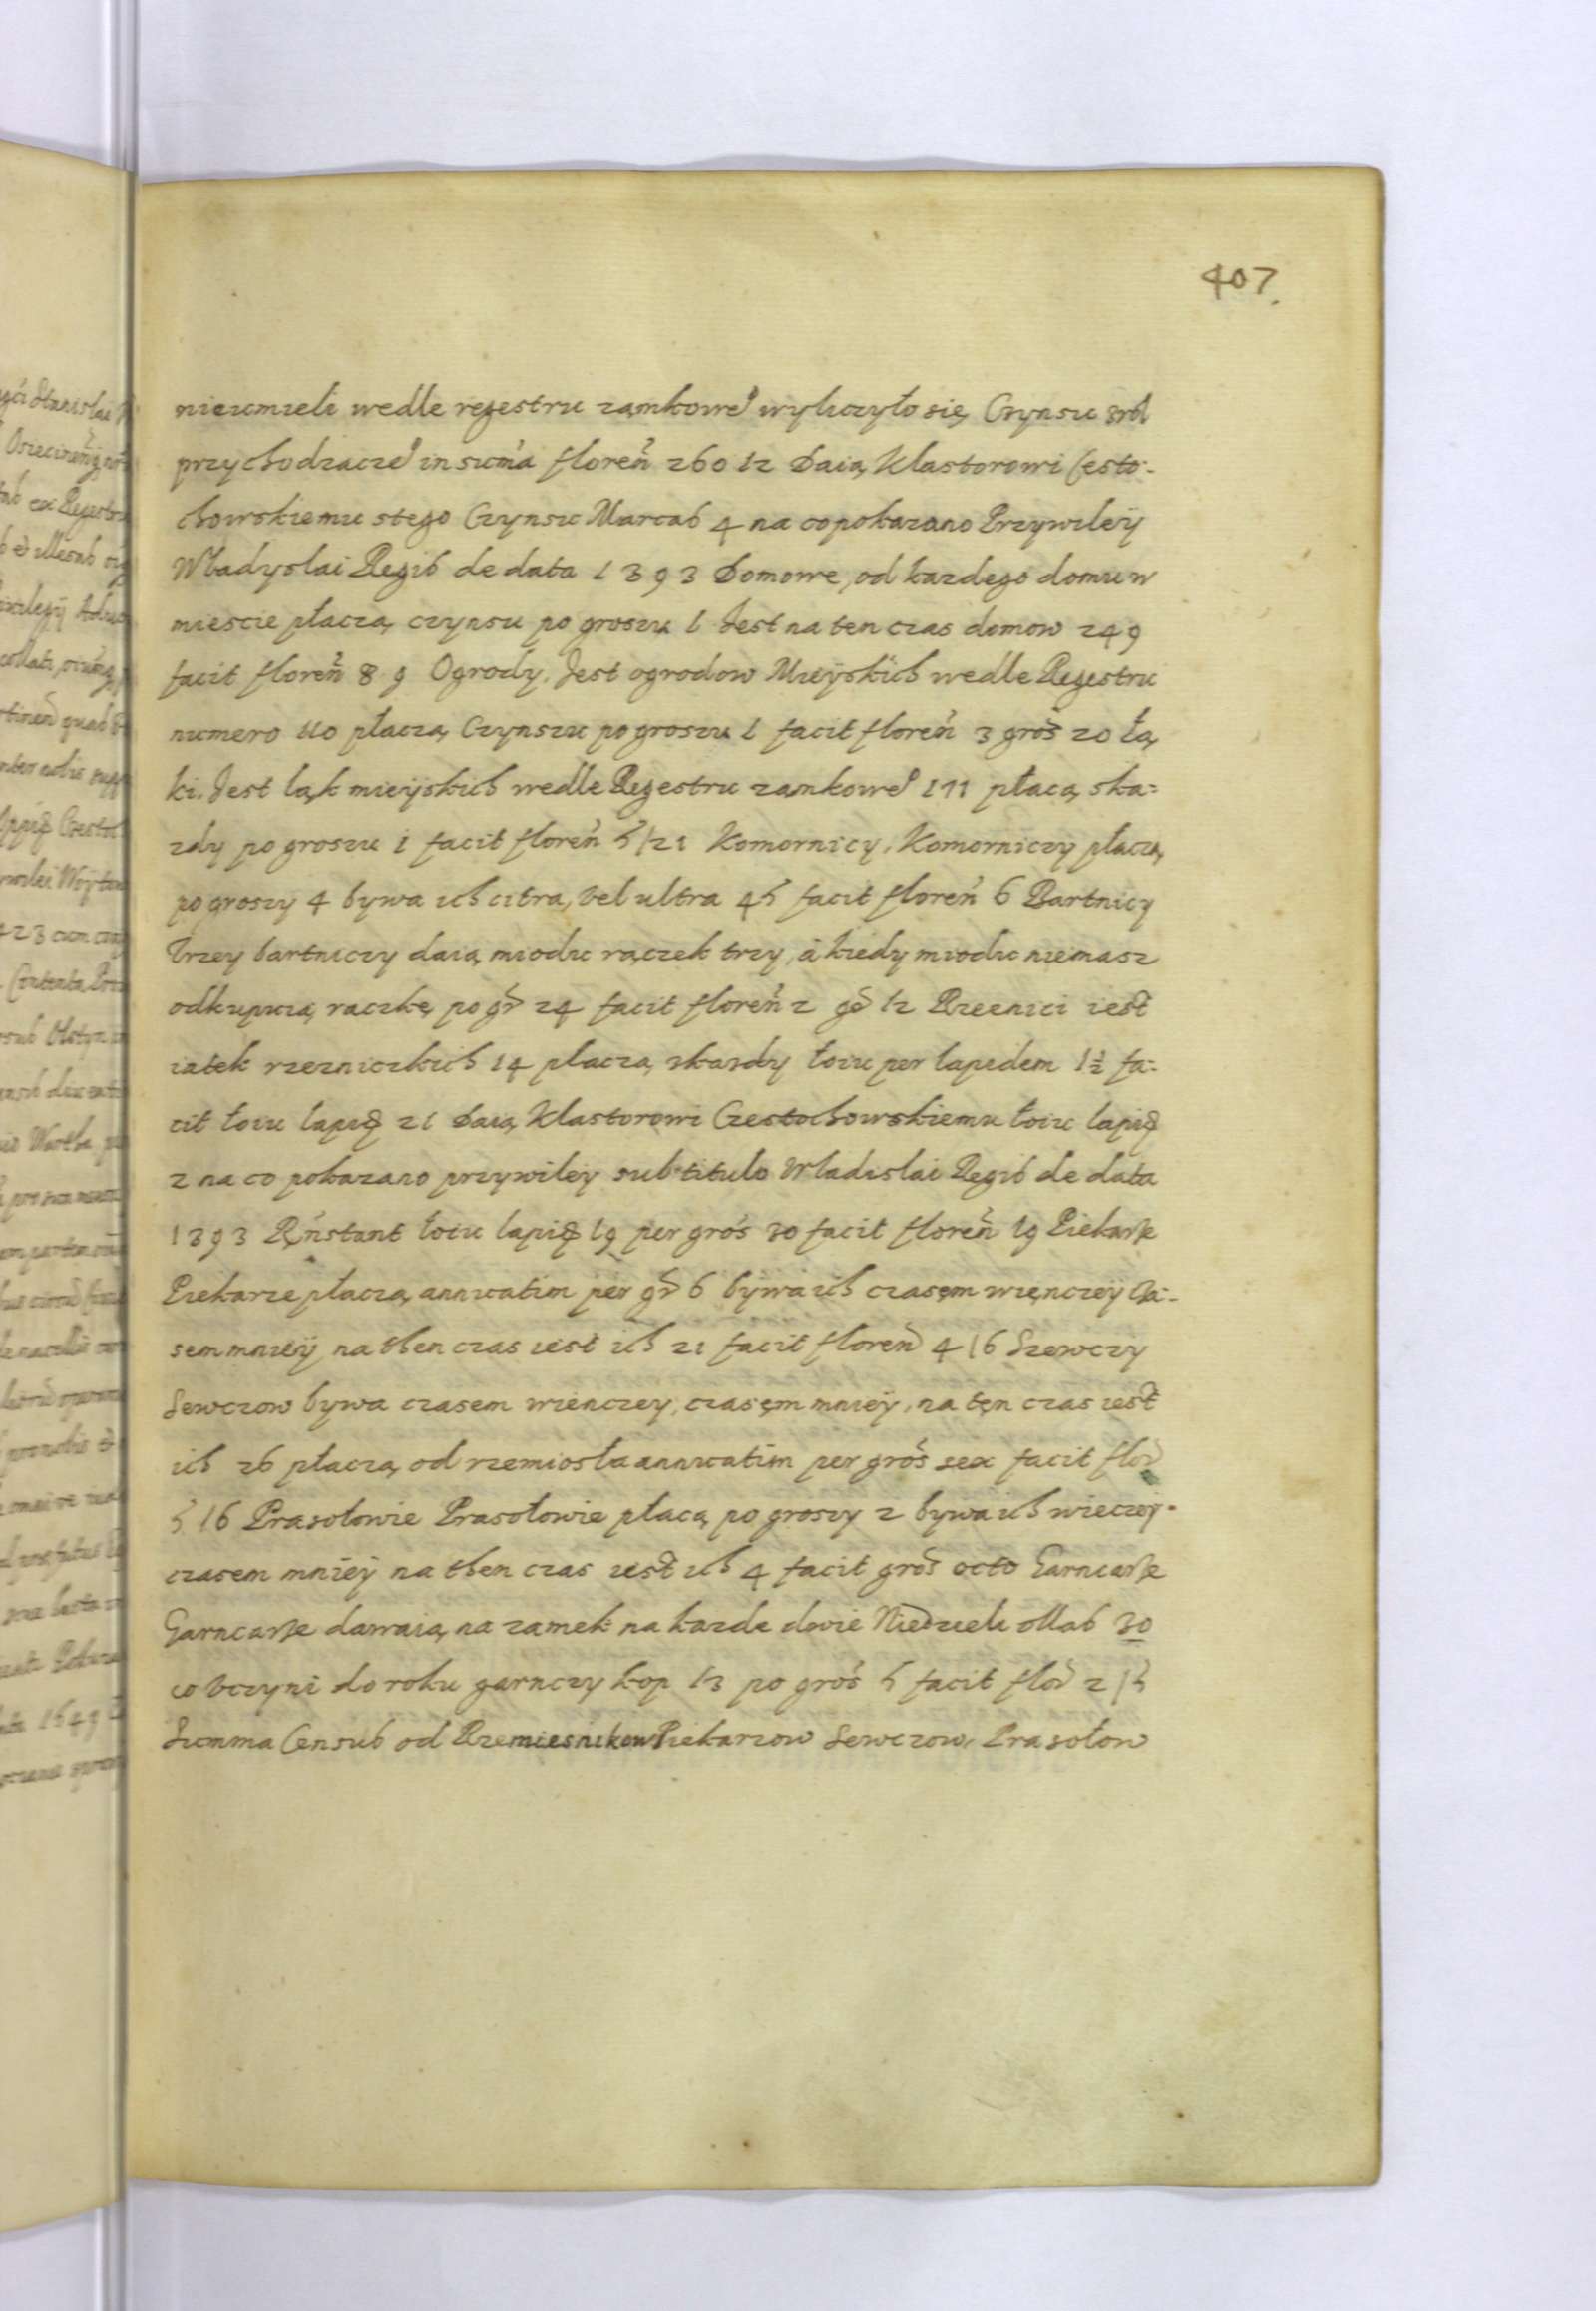 407.
nieumieli wedle regestru zamkowe° wyliczyło się, Czynsu zról
przychodzącze° in sum̃a floreñ 260 12 Daią Klastorowi Cesto-
chowskiemu stego Czynsu Marcas 4 na co pokazano Przywiley
Władyslai Regis de data 1393 Domowe, od kazdego domu w
miescie płaczą czynsu po groszu 1 Jest na ten czas domow 249
facit floreñ 8 9 Ogrody. Jest ogrodow Mieÿskich wedle Regestru
numero 110 płaczą Czynszu po groszu 1 facit floreñ 3 gros 20 Łą
ki. Jest ląk mieÿskich wedle Regestru zamkowe° 171 płacą ska-
zdy po groszu 1 facit floreñ 5/21 Komornicy. Komorniczy płaczą
po groszy 4 bywa ich citra, vel ultra 45 facit floreñ 6 Bartnicy
Trzey bartniczy daią miodu rączek trzy, á kiedy miodu niemasz
odkupuią raczkę po gr 24 facit floreñ 2 gr 12 Rzeznici iest
iatek rzezniczkich 14 placzą skazdy łoiu per lapidem 1½ fa-
cit łoiu lapid 21 Daią Klastorowi Czestochowskiemu łoiu lapid
2 na co pokazano przywiley sub titulo Vladislai Regis de data
1393 Rñstant łoiu lapid 19 per gros 30 facit floreñ 19 Piekarze
Piekarze płaczą annuatim per gr 6 bywa ich czasem wienczeÿ cza-
sem mnieÿ na then czas iest ich 21 facit floreñ 4/6 Szewczy
Sewczow bywa czasem wienczey, czasem mnieÿ, na ten czas iest
ich 26 płaczą od rzemiosła annuatim per gros sex facit flor
5/6 Prasołowie Prasołowie płacą po groszy 2 bywa ich wieczeÿ
czasem mnieÿ na then czas iest ich 4 facit gros octo Garncarze
Garncarze dawaią na zamek na kazde dwie Niedziele ollas 30
co vczyni do roku garnczy kop 13 po gros 5 facit flor 2/5
Summa Census od Rzemiesnikow Piekarzow Sewczow, Prasołow